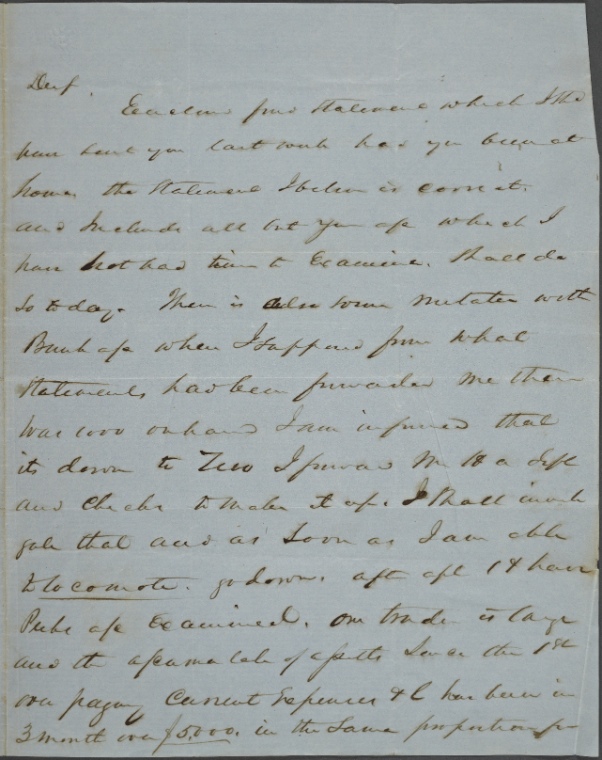 Enclosed find Statement which I sh
have sent you last week had you been at
home. the Statement I believe is correct.
and Includes all but your a/c which I
have not had time to Examine. Shall do
So to day. There is also some mistake with
Bank a/c when I suppose from what
Statements had been forwarded me there
was 1000 on hand I am informed that
its down to Zero I forward Mr a dft
and checks to make it up. I Shall
that and as Soon as I am able
to locomote. go down. after 14 have
a/c Examined. our trade is large
and the of Since the 1st
over paying Current Expenses &c has been in
3 month over $5,000. in the Same proportion for